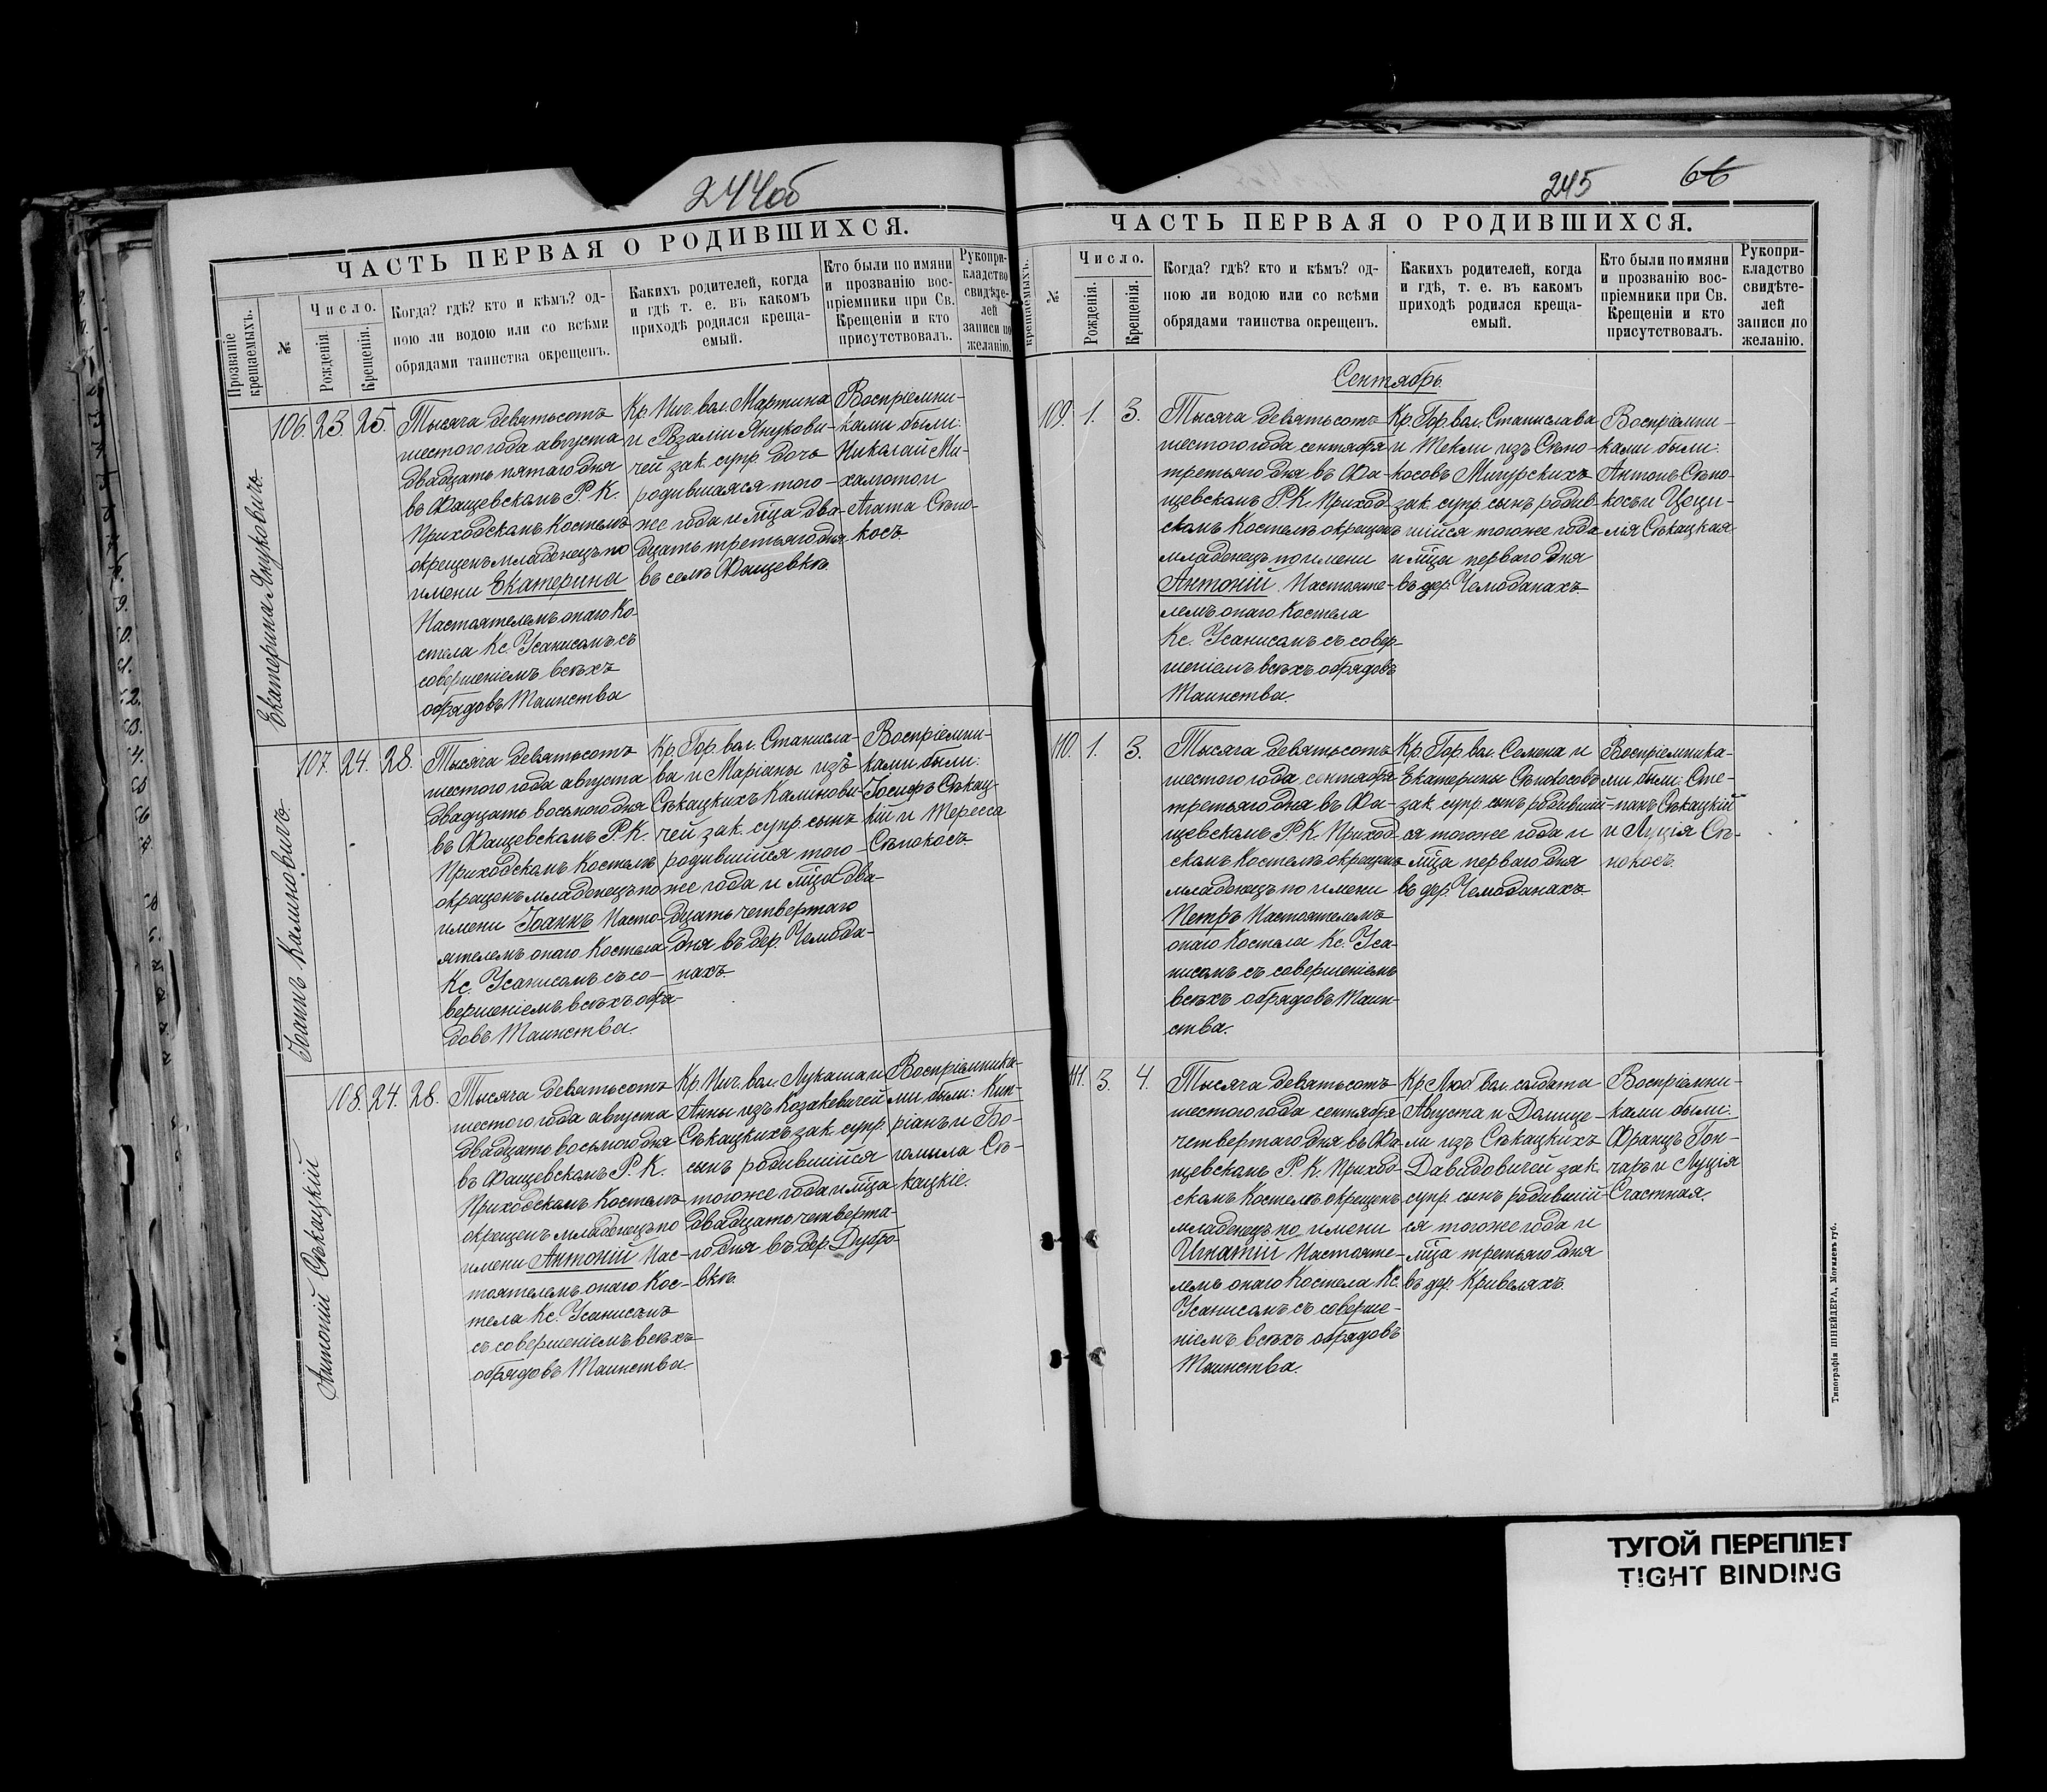 244об
ЧАСТЬ ПЕРВАЯ О РОДИВШИХСЯ.
Прозваніе крещаемыхъ.
№
Число.
Рожденія.
Крещенія.
Когда? гдѣ? кто и кѣмъ? од-
ною ли водою или со всѣми
обрядами таинства окрещенъ.
Какихъ родителей, когда
и гдѣ т. е. въ какомъ
приходѣ родился креща-
емый.
Кто были по имяни
и прозванію вос-
пріемники при Св.
Крещеніи и кто
присутствовалъ.
Рукопри-
кладство
свидѣте-
лей
записи по
желанію.
Екатерина Януковичъ.
106. 23. 25.
Тысяча девятьсотъ
шестого года августа
двадцать пятаго дня
въ Фащевскомъ Р. К.
Приходскомъ Костелѣ
окрещенъ младенецъ по
имени Екатерина
Настоятелемъ онаго Ко-
стела Кс. Усанисомъ съ
совершеніемъ всѣхъ
обрядовъ Таинства
Кр. Нич. вол. Мартина
и Розаліи Янукови-
чей зак. супр. дочь
родившаяся того-
же года и м̃ца два-
дцать третьяго дня
въ селѣ Фащевкѣ.
Воспріемни-
ками были:
Николай Ми-
халютои
Агата Сѣно-
косъ.
Іоаннъ Калиновичъ.
107. 24. 28.
Тысяча девятьсотъ
шестого года августа
двадцать восьмого дня
въ Фащевскомъ Р. К.
Приходскомъ Костелѣ
окрещенъ младенецъ по
имени Іоаннъ Насто-
ятелемъ онаго Костела
Кс. Усанисомъ съ со-
вершеніемъ всѣхъ обря-
довъ Таинства.
Кр. Гор. вол. Станисла-
ва и Маріаны изъ
Сѣкацкихъ Калинови-
чей зак. супр. сынъ
родившійся того-
же года и м̃ца два-
дцать четвертаго
дня въ дер. Чемода-
нахъ
Воспріемни-
ками были:
Іосифъ Сѣкац-
кій и Тересса
Сѣнокосъ
Антоній Сѣкацкій
108. 24. 28.
Тысяча девятьсотъ
шестого года августа
двадцать восьмого дня
въ Фащевскомъ Р. К.
Приходскомъ Костелѣ
окрещенъ младенецъ по
имени Антоній Нас-
тоятелемъ онаго Кос-
тела Кс. Усанисомъ
съ совершеніемъ всѣхъ
обрядовъ Таинства.
Кр. Нич. вол. Лукаша и
Анны изъ Козакевичей
Сѣкацкихъ зак. супр.
сынъ родившійся
тогоже года и м̃ца
двадцать четверта-
го дня въ дер. Дубро-
вкѣ.
Воспріемника-
ми были: Кип-
ріанъ и Бо-
гомила Сѣ-
кацкіе.
245 66
ЧАСТЬ ПЕРВАЯ О РОДИВШИХСЯ.
крещаемыхъ.
№
Число.
Рожденія.
Крещенія.
Когда? гдѣ? кто и кѣмъ? од-
ною ли водою или со всѣми
обрядами таинства окрещенъ.
Какихъ родителей, когда
и гдѣ, т. е. въ какомъ
приходѣ родился креща-
емый.
Кто были по имяни
и прозванію вос-
пріемники при Св.
Крещеніи и кто
присутствовалъ.
Рукопри-
кладство
свидѣте-
лей
записи по
желанію.
Сентябрь.
109. 1. 3.
Тысяча девятьсотъ
шестого года сентября
третьяго дня въ Фа-
щевскомъ Р. К. Приход-
скомъ Костелѣ окрещенъ
младенецъ по имени
Антоній Настояте-
лемъ онаго Костела
Кс. Усанисомъ съ совер-
шеніемъ всѣхъ обрядовъ
Таинства.
Кр. Гор. вол. Станислава
и Текли изъ Сѣно-
косовъ Мигурскихъ
зак. супр. сынъ родив-
шійся тогоже года
и м̃ца перваго дня
въ дер. Чемоданахъ
Воспріемни-
ками были:
Антонъ Сѣно-
косъ и Цеци-
лія Сѣкацкая
110. 1. 3.
Тысяча девятьсотъ
шестого года сентября
третьяго дня въ Фа-
щевскомъ Р. К. Приход-
скомъ Костелѣ окрещенъ
младенецъ по имени
Петръ Настоятелемъ
онаго Костела Кс. Уса-
нисомъ съ совершеніемъ
всѣхъ обрядовъ Таин-
ства.
Кр. Гор. вол. Семена и
Екатерины Сѣнокосовъ
зак. супр. сынъ родивший-
ся тогоже года и
м̃ца перваго дня
въ дер. Чемоданахъ
Воспріемника-
ми были: Сте-
панъ Сѣкацкій
и Луція Сѣ-
нокосъ.
111. 3. 4.
Тысяча девятьсотъ
шестого года сентября
четвертаго дня въ Фа-
щевскомъ Р. К. Приход-
скомъ Костелѣ окрещенъ
младенецъ по имени
Игнатій Настояте-
лемъ онаго Костела Кс.
Усанисомъ съ соверше-
ніемъ всѣхъ обрядовъ
Таинства.
Кр. Люб. вол. солдата
Августа и Доміце-
ли изъ Сѣкацкихъ
Давидовичей зак.
супр. сынъ родивший-
ся тогоже года и
м̃ца третьяго дня
въ дер. Кривеляхъ.
Воспріемни-
ками были:
Францъ Гон-
чаръ и Луція
Счастная.
Типографія ШНЕЙДЕРА, Могилевъ губ.
ТУГОЙ ПЕРЕПЛЕТ
TIGHT BINDING